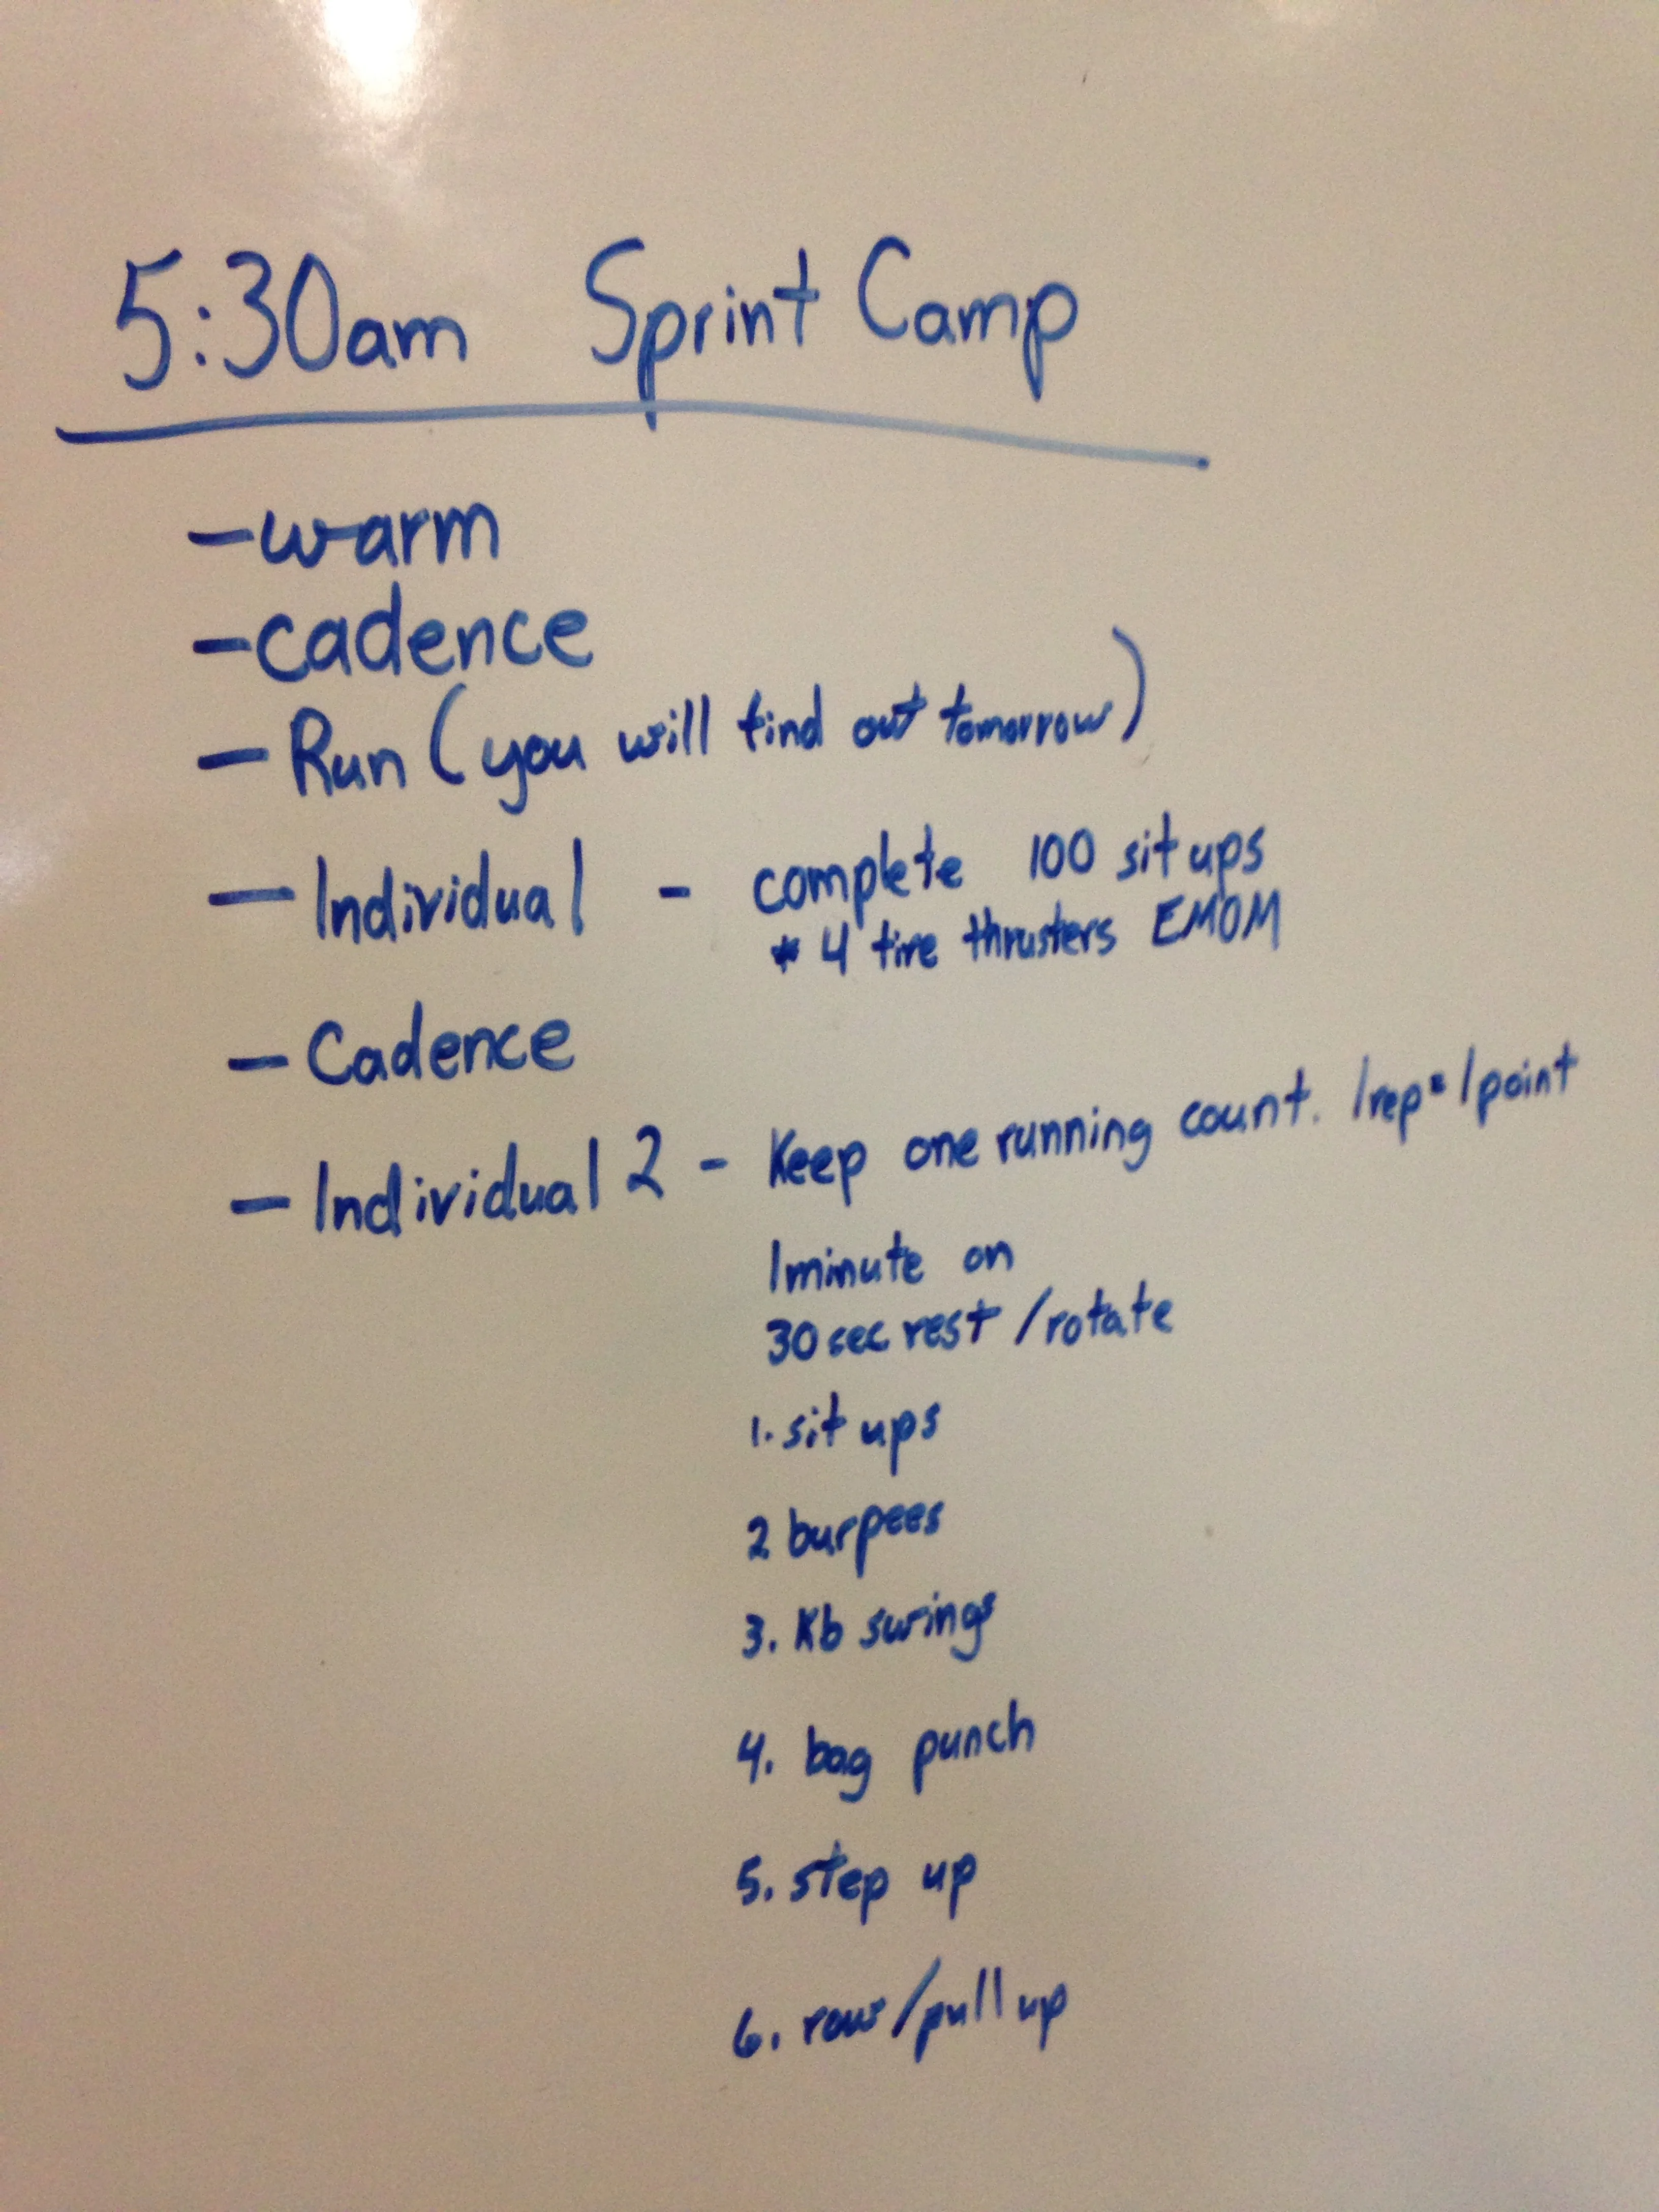 5:30am Sprint Camp
- warm
- cadence
- Run (you will find out tomorrow)
- Individual - complete 100 sit ups
* 4 tire thrusters EMOM
- Cadence
- Individual 2 - Keep one running count. 1rep = 1point
1minute on
30sec rest / rotate
1. sit ups
2 burpees
3. Kb swings
4. bag punch
5. step up
6. row/pull up